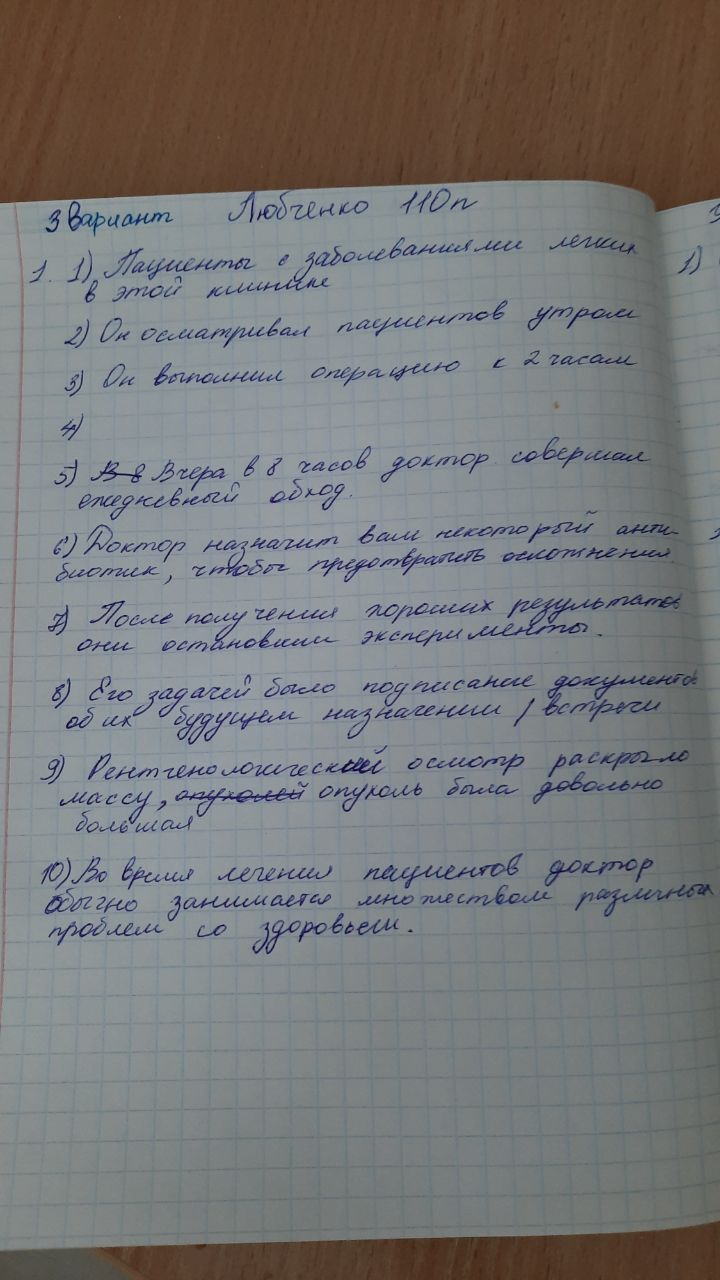 3 Вариант Любченко 110п
1. 1) Пациенты с заболеваниями легких
в этой клинике
2) Он осматривал пациентов утром
3) Он выполнил операцию к 2 часам
4)
5) В 8 Вчера в 8 часов доктор совершал
ежедневный обход.
6) Доктор назначит вам некоторый анти-
биотик, чтобы предотвратить осложнения
7) После получения хороших результатов
они остановили эксперименты.
8) Его задачей было подписание документов
об их будущем назначении / встречи
9) Рентгенологический осмотр раскрыло
массу, опухолей опухоль была довольно
большая
10) Во время лечения пациентов доктор
обычно занимается множеством различных
проблем со здоровьем.
1)